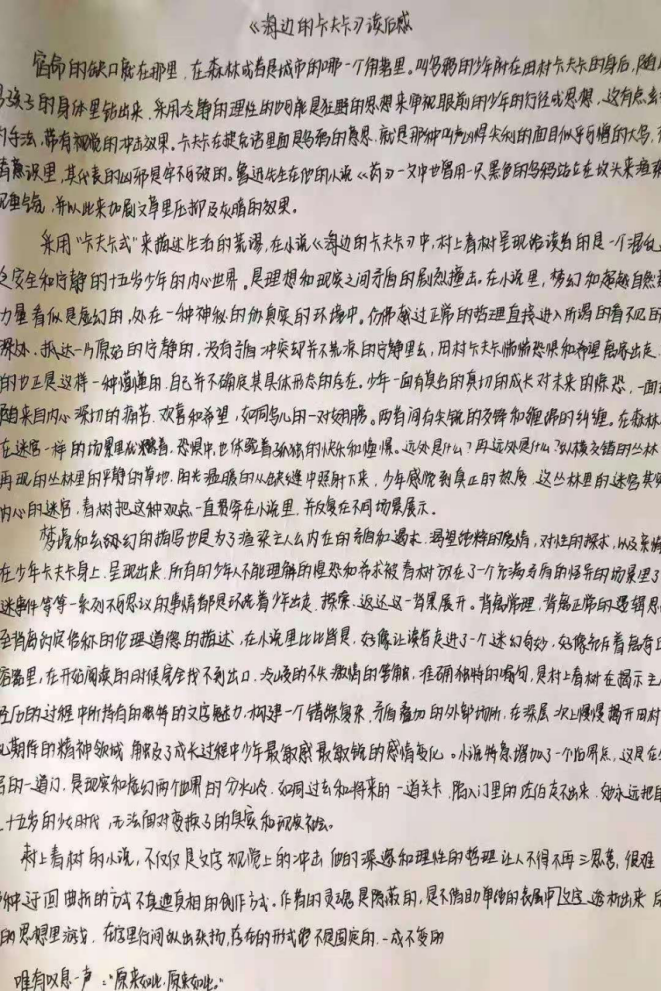 《海边的卡夫卡》读后感
宿命的缺口就在那里,在森林或者是城市的哪一个角落里。叫乌鸦的少年附在田村卡夫卡的身后,随
孩子的身体里钻出来,采用冷静的理性的也可能是狂野的思想来审视眼前的少年的行径或思想,这有点
手法,带有视觉的冲击效果。卡夫卡在捷克语里面是乌鸦的意思,就是那种叫声 尖利的面目似乎可憎的大鸟,
意识里,其代表的凶邪是牢不可破的。鲁迅先生在他的小说《药》一文中也曾用一只黑色的乌鸦站立在坟头来渲
并以此来加剧文章里压抑及灰暗的效果。
采用“卡夫卡式”来描述生活的荒谬,在小说《海边的卡夫卡》中,村上春树呈现给读者的是一个混乱
安全和宁静的十五岁少年的内心世界。是理想和现实之间矛盾的剧烈撞击。在小说里,梦幻和超越自然
力量看似是魔幻的,处在一种神秘的仿真实的环境中。仿佛越过正常的哲理直接进入所谓的看不见的
深处,抵达一片原始的宁静的,没有矛盾冲突却并不荒凉的宁静里去,田村卡夫卡惴惴恐惧和希望离家出走
的也正是这样一种懵懂的,自己并不确定其具体形态的存在。少年一面有莫名的真切的成长对未来的惊恐,一面
来自内心深切的痛苦,欢喜和希望,如同鸟儿的一对翅膀。两者间有尖锐的交锋和缠绵的纠缠。在森林
在迷宫一样的场景里 恐惧中,也体验着孤独的快乐和憧憬。远处是什么?再远处是什么?纵横交错的丛林
再现的丛林里的平静的草地,阳光温暖的从缺缝中照射下来,少年感觉到真正的热度,这丛林里的迷宫其
内心的迷宫,春树把这种观点一直贯穿在小说里,并反复在不同场景展示。
梦魇和玄幻的描写也是为了渲染主人公内在的矛盾和渴求,渴望独特的爱情,对性的探求,以及亲情
在少年卡夫卡身上呈现出来,所有的少年人不能理解的惶恐和苛求被春树放在了一个充满矛盾的怪异的场景里
迷事件等等一系列不可思议的事情都是环绕着少年出走,探索,返还这一背景展开。背离常理,背离正常的逻辑思
至背离约定俗称的伦理道德的描述,在小说里比比皆是,好像让读者走进了一个迷幻奇妙,好像
里,在开始阅读的时候完全找不到出口,冷峻的不失激情的笔触,准确独特的词句,是村上春树在揭示主人
经历的过程中所持有的独特的文字魅力,构建一个错综复杂,矛盾叠加的外部场所,在深层次上慢慢揭开田村
期伴的精神领域,触及了成长过程中少年最敏感最敏锐的感情变化。小说特意增加了一个临界点,这是在
的一道门,是现实和魔幻两个世界的分水岭,如同过去和将来的一道关卡,陷入门里的佐伯走不出来,她永远把自
十五岁的少女时代,无法面对变换了的真实和现实社会。
村上春树的小说,不仅仅是文字视觉上的冲击,他的深邃和理性的哲理让人不得不再三思考,很难
种迂回曲折的方式不直迫真相的创作方式。作者的灵魂是隐蔽的,是不借助单纯的表层文字透析出来,
的思想里游戈,在字里行间纵出张扬,存在的形式绝不是固定的,一成不变的
唯有叹息一声:“原来如此,原来如此。”